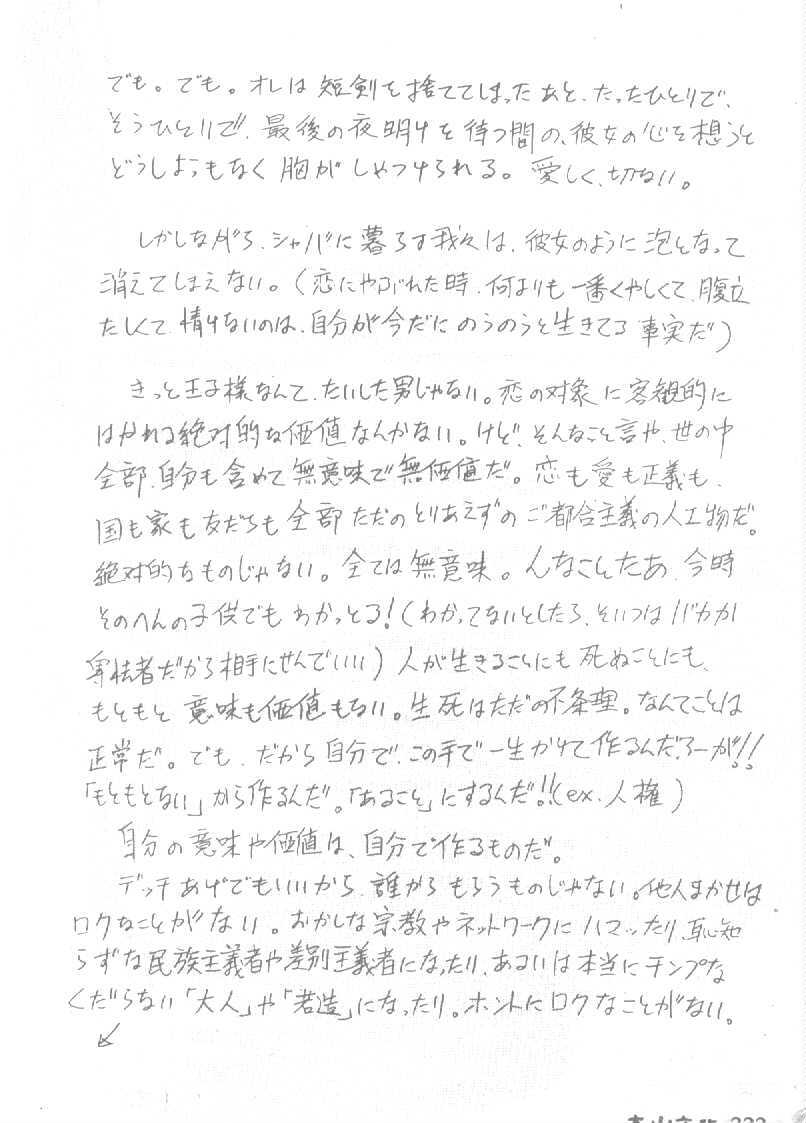 でも。でも。オレは短剣を捨ててしまったあと、たったひとりで、
そうひとりで、最後の夜明けを待つ間の、彼女の心を想うと
どうしようもなく胸がしめつけられる。愛しく、切ない。
しかしながら、シャバに暮らす我々は、彼女のように泡となって
消えてしまえない。(恋にやぶれた時、何よりも一番くやしくて、腹立
たしくて、情けないのは、自分が今だにのうのうと生きてる事実だ)
きっと王子様なんて、たいした男じゃない。恋の対象に客観的に
はかれる絶対的な価値なんかない。けど、そんなこと言や、世の中
全部、自分も含めて無意味で無価値だ。恋も愛も正義も、
国も家も友だちも全部ただのとりあえずのご都合主義の人工物だ。
絶対的なものじゃない。全ては無意味。んなこたあ、今時
そのへんの子供でもわかっとる!(わかってないとしたら、そいつはバカか
卑怯者だから相手にせんでいい)人が生きることにも死ぬことにも、
もともと意味も価値もない。生死はただの不条理。なんてことは
正常だ。でも、だから自分で、この手で一生かけて作るんだろーが!!
「もともとない」から作るんだ。「あること」にするんだ!!(ex.人権)
自分の意味や価値は、自分で作るものだ。
デッチあげでもいいから、誰からもらうものじゃない。他人まかせは
ロクなことがない。おかしな宗教やネットワークにハマったり、恥知
らずな民族主義者や差別主義者になったり、あるいは本当にチンプな
くだらない「大人」や「若造」になったり。ホントにロクなことがない。
↙